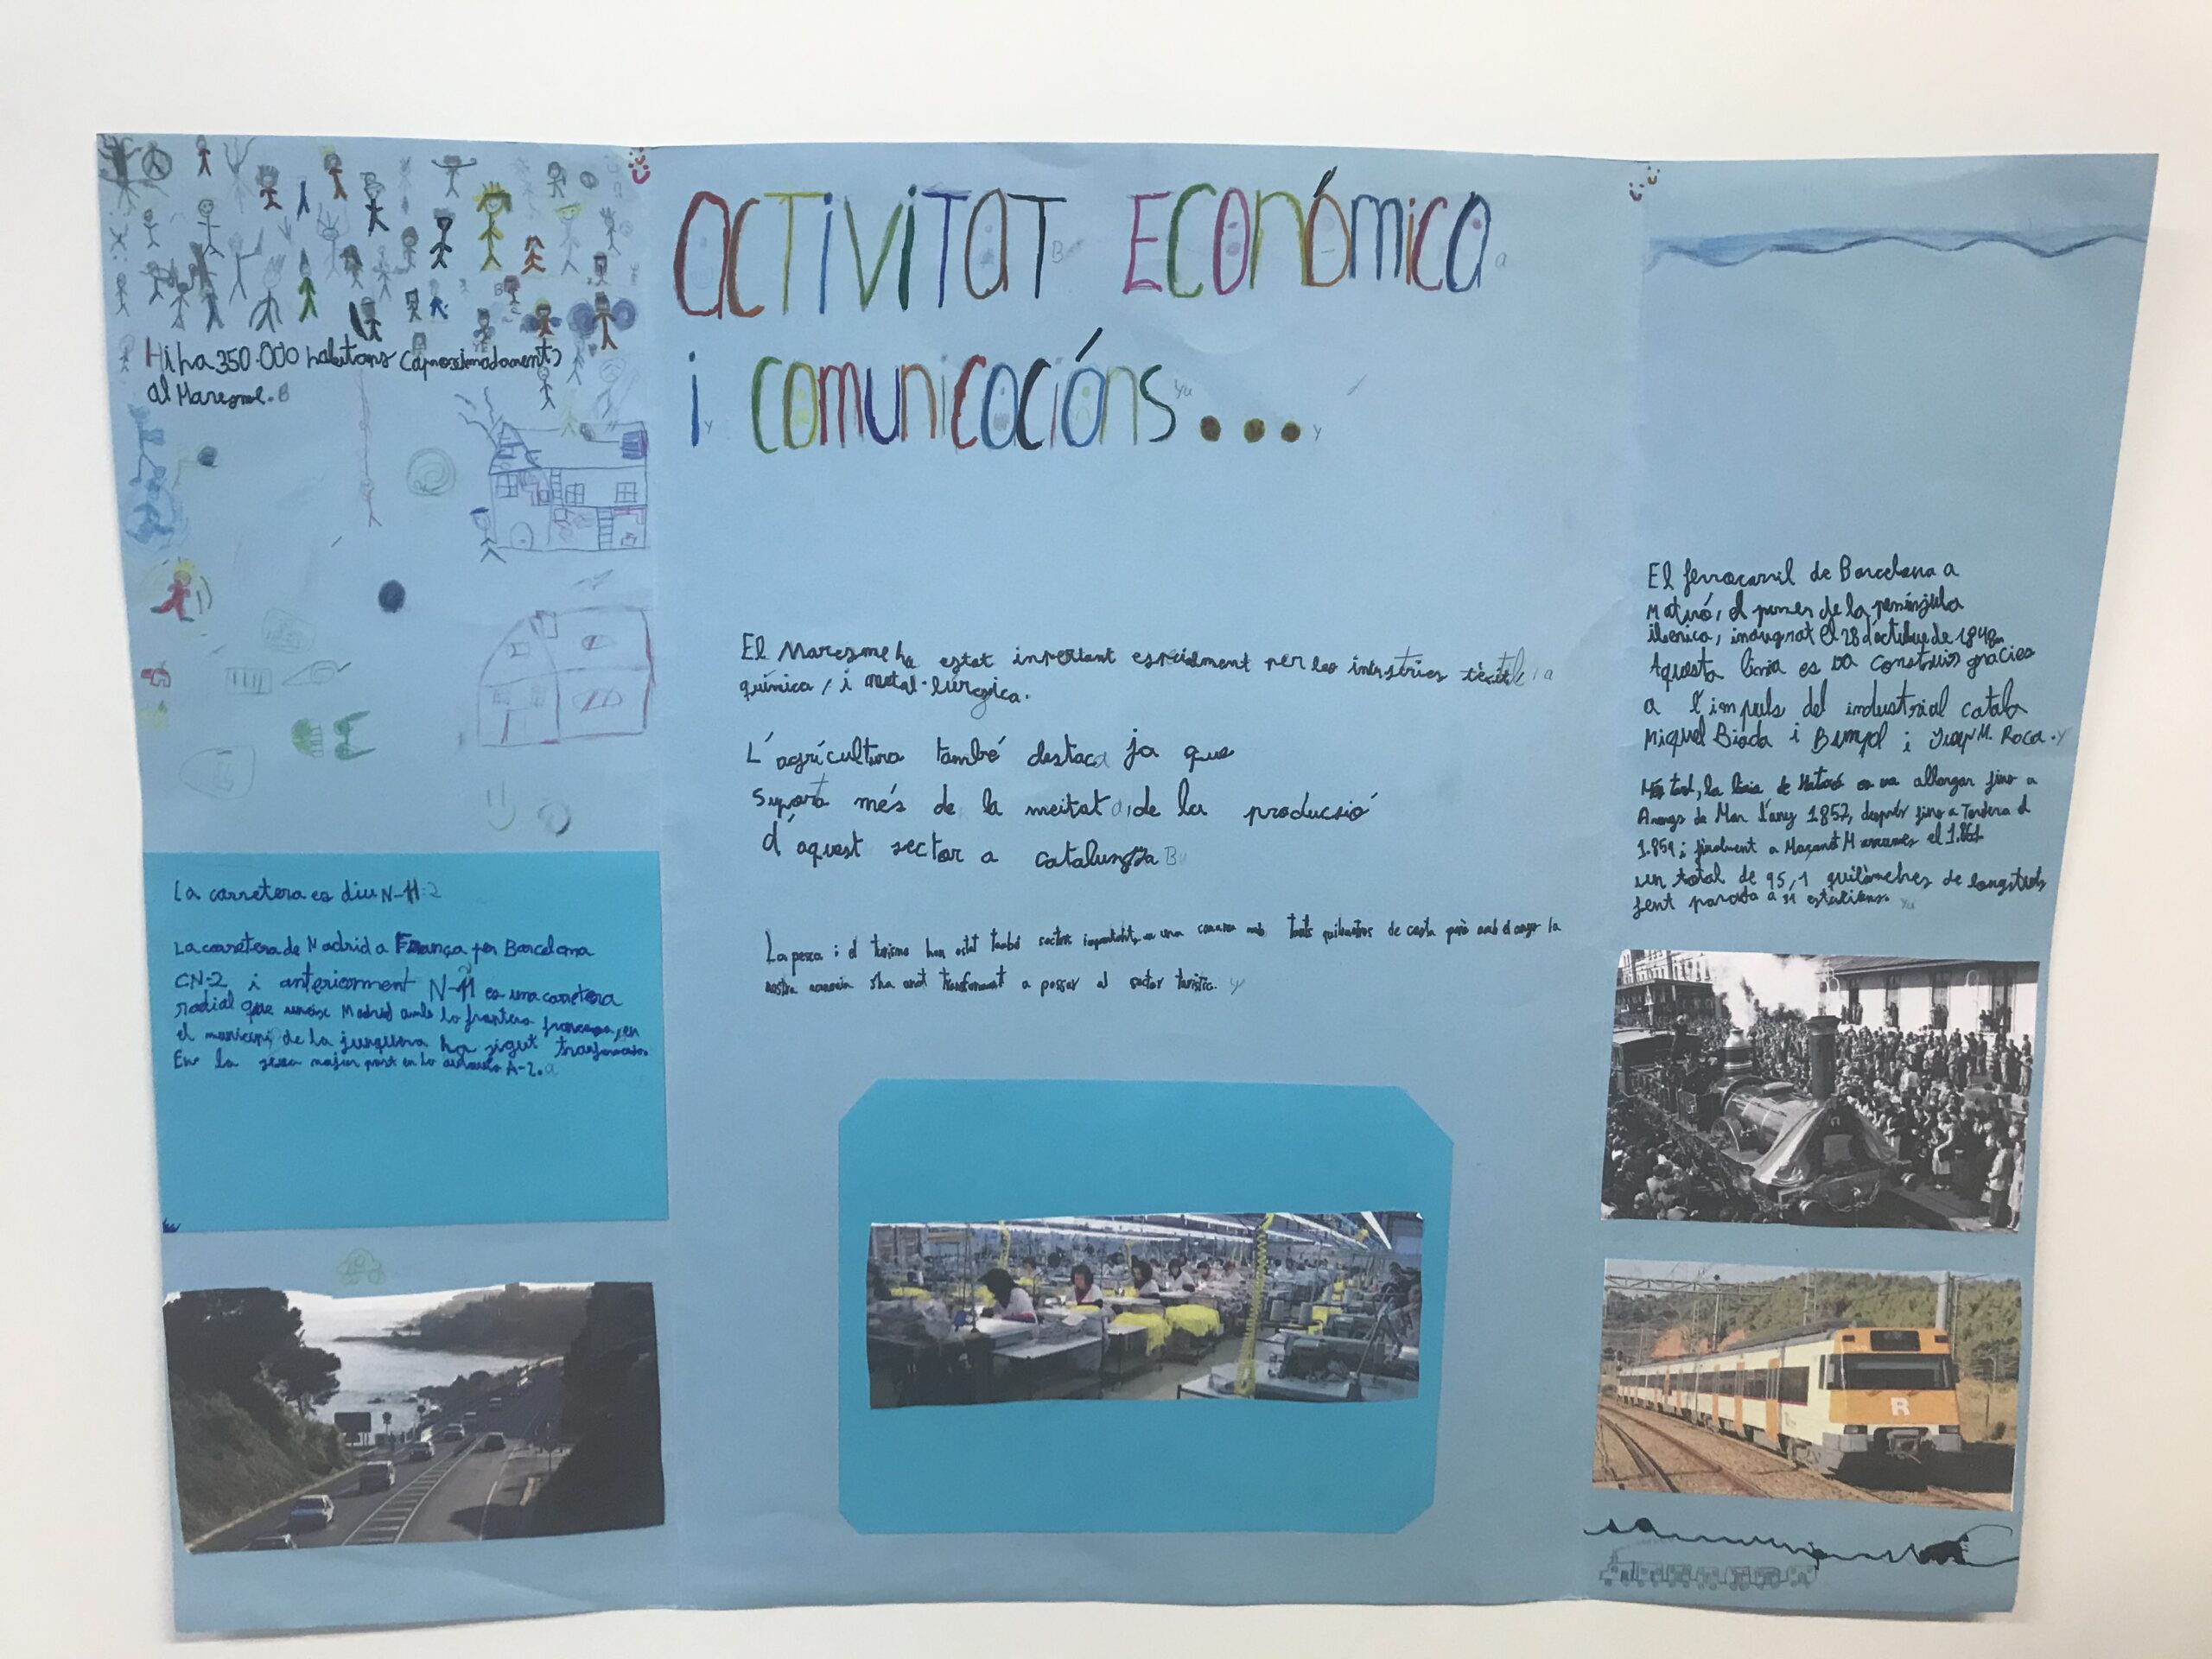 activitat económica
i comunicacións...
Hi ha 350.000 habitans (aproximadament)
al Maresme.
La carretera es diu N-11
La carretera de Madrid a França per Barcelona
CN-2 i anteriorment N-11 es una carretera
radial que uneix Madrid amb la frontera francesa, en
el municipi de la junquera ha sigut
En la seva major part en la autovia A-2.
El Maresme ha estat important especialment per les indústries tèxtil,
química, i metal·lúrgica.
L'agrícultura també destaca ja que
suporta més de la meitat de la producsió
d'aquest sector a catalunya
La pesca i el turisme han estat també sectors importants, en una comarca amb tants quilometres de costa però amb el anys la
nostra economia s'ha anat transformant a passar al sector turistic.
El ferrocarril de Barcelona a
Mataró, el primer de la península
iberica, inaugurat el 28 d'octubre de 1848.
Aquesta linia es va construir gracies
a l'impuls del industrial catala
Miquel Biada i Bunyol i Josep M. Roca.
Més tard, la linia de Mataró es va allargar fins a
Arenys de Mar l'any 1857, després fins a Tordera el
1.859 i finalment a Maçanet Massanes el 1.861
un total de 95,1 quilòmetres de longitud
fent parada a 31 estacions.
R